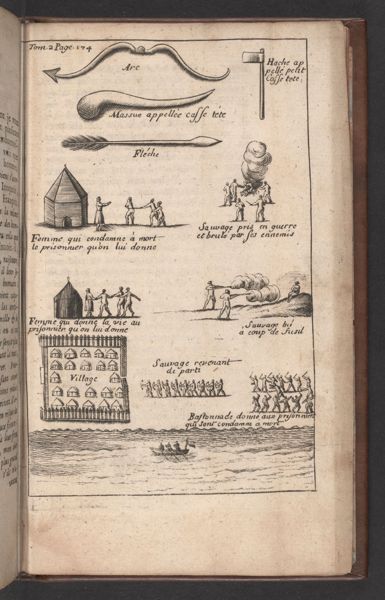 Tom 2 Page 174
Arc
Hache ap
pellé petit
Casse tete.
Massue appellée casse tête
Fléche
Femme qui condamne à mort
le prisonnier qu'on lui donne
Sauvage pris en guerre
et brulé par ses ennemis
Femme qui donne la vie au
prisonnier qu'on lui donne
Sauvage
a coup de fusil
Village
Sauvage revenant
de parti
Bastonnade donne aux prisonniers
qui sont condamne a mort